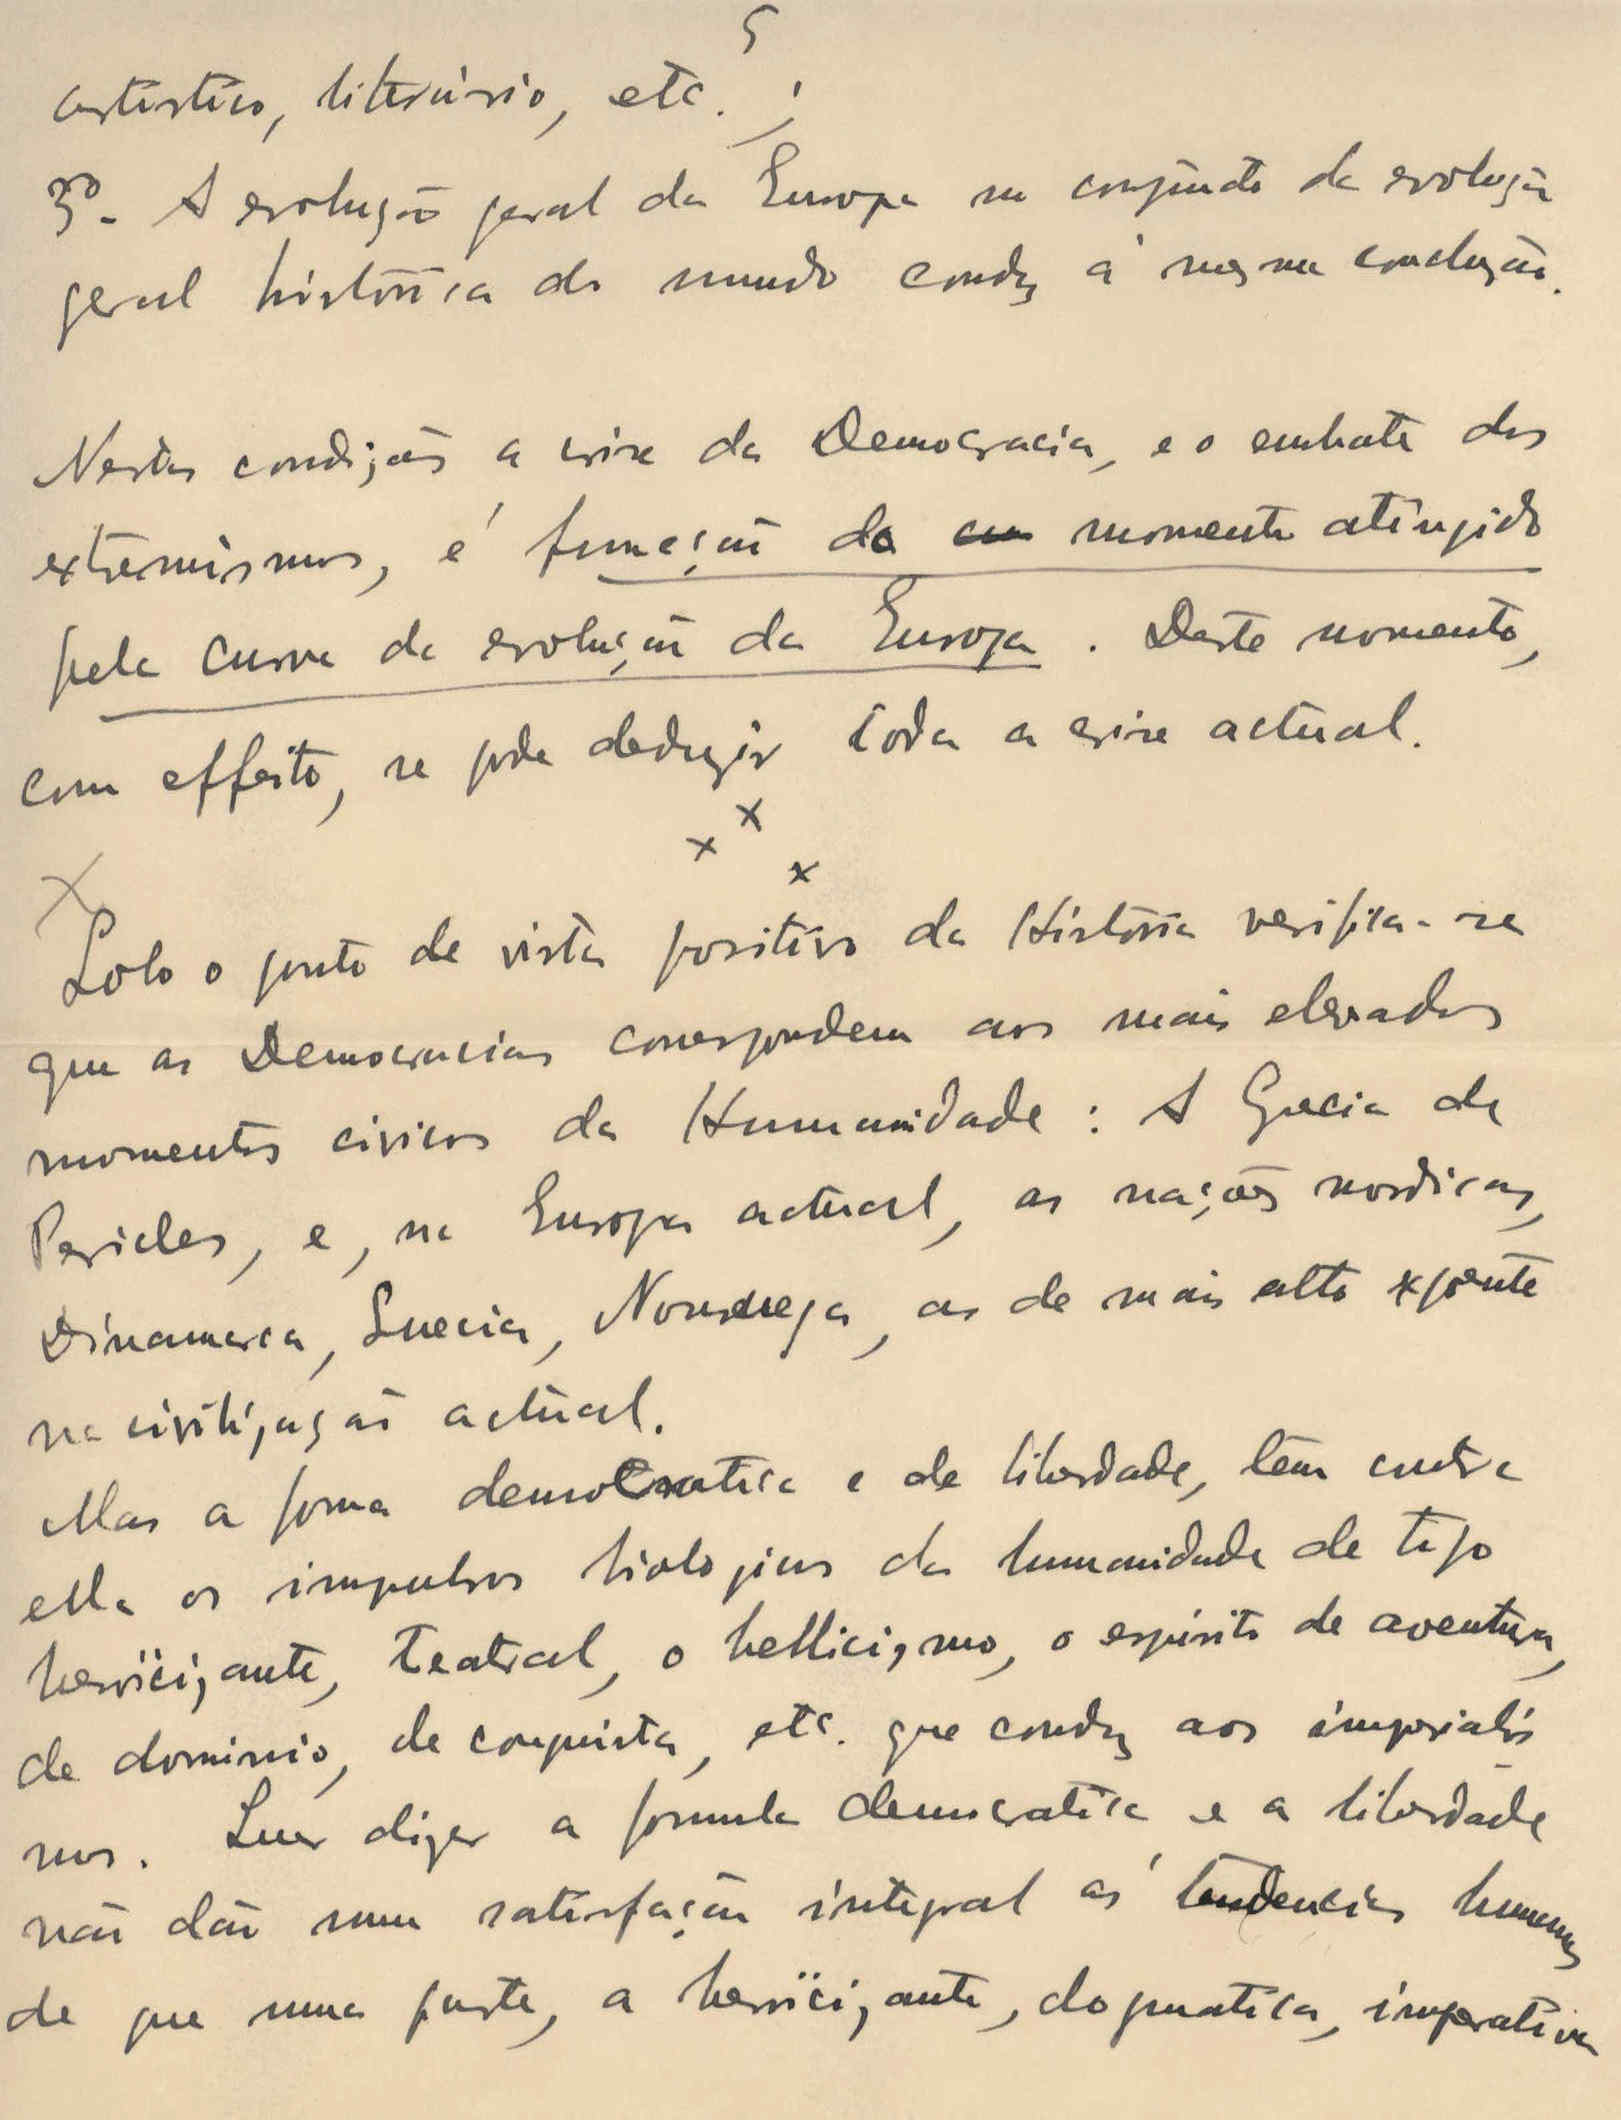 5
artistico, literário, etc.;
3º- A evolução geral da Europa no conjuncto da evolução
geral histórica do mundo conduz á mesma conclusão.
Nestas condições a crise da Democracia, e o embate dos
extremismos, é funcção do momento atingido
pela curva da evolução da Europa. Deste momento,
com effeito, se pode deduzir toda a crise actual.
x x x
X
Sob o ponto de vista positivo da História verifica-se
que as Democracias correspondem aos mais elevados
momentos civicos da Humanidade: A Grecia de
Pericles, e, na Europa actual, as nações nordicas,
Dinamarca, Suecia, Noruega, as de mais alto expoente
na civilização actual.
Mas a forma democratica e de liberdade, tem contra
ella os impulsos biologicos da humanidade de tipo
heroïcizante, teatral, o bellicizmo, o espirito de aventura,
de dominio, de conquista, etc. que conduz aos imperialis-
mos. Quer dizer a formula democratica e a liberdade
não dão uma satisfação integral ás tendencias humanas
de que uma parte, a heroïcizante, dogmatica, imperativa